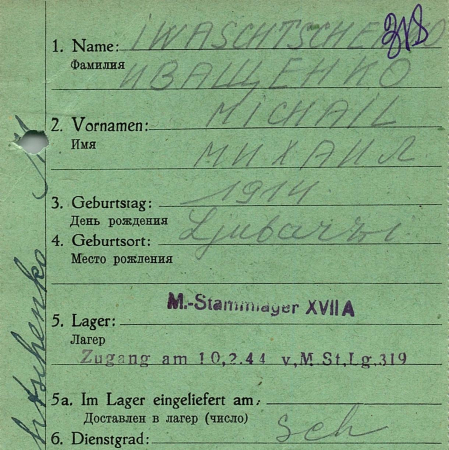 1. Name: IWASCHTSCHENKO
Фамилия ИВАЩЕНКО
2. Vornamen: MICHAIL
Имя МИХАИЛ
3. Geburtstag: 1914
День рождения
4. Geburtsort: Ljubarzi
Место рождения
M.-Stammlager XVII A
5. Lager:
Лагер
Zugang am 10.2.44 v. M. St. Lg. 319
5a. Im Lager eingeliefert am:
Доставлен в лагер (число)
6. Dienstgrad: Sch